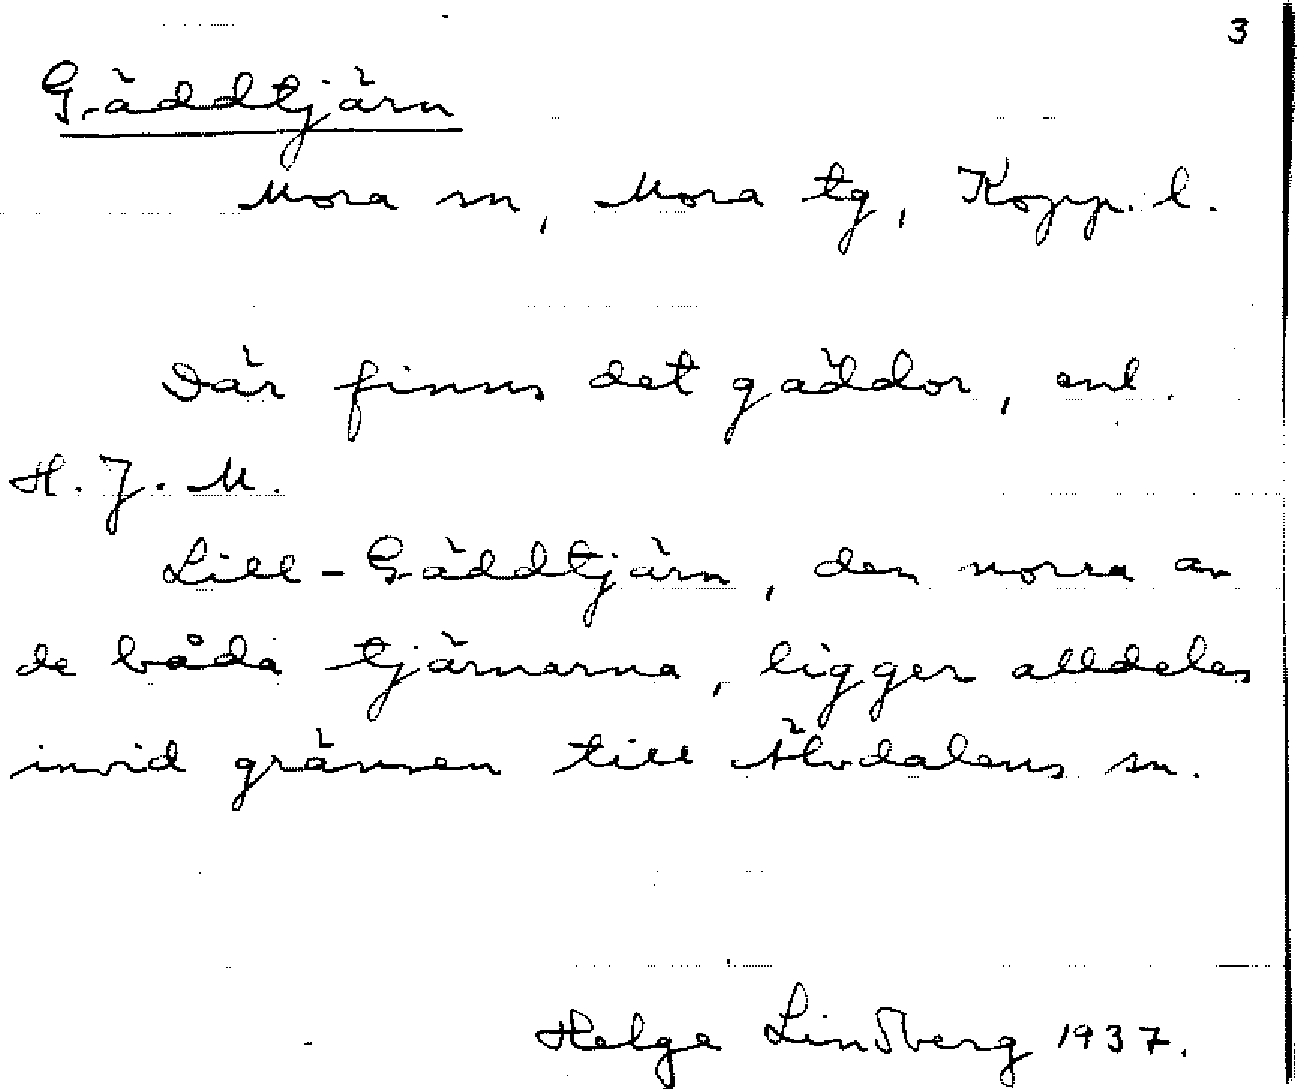 3
Gäddtjärn
Mora sn, Mora tg, Kopp. l.
Där finns det gäddor, enl.
H. J. M.
Lill-Gäddtjärn, den norra av
de båda tjärnarna, ligger alldeles
invid gränsen till Älvdalens sn.
Helge Lindberg 1937.